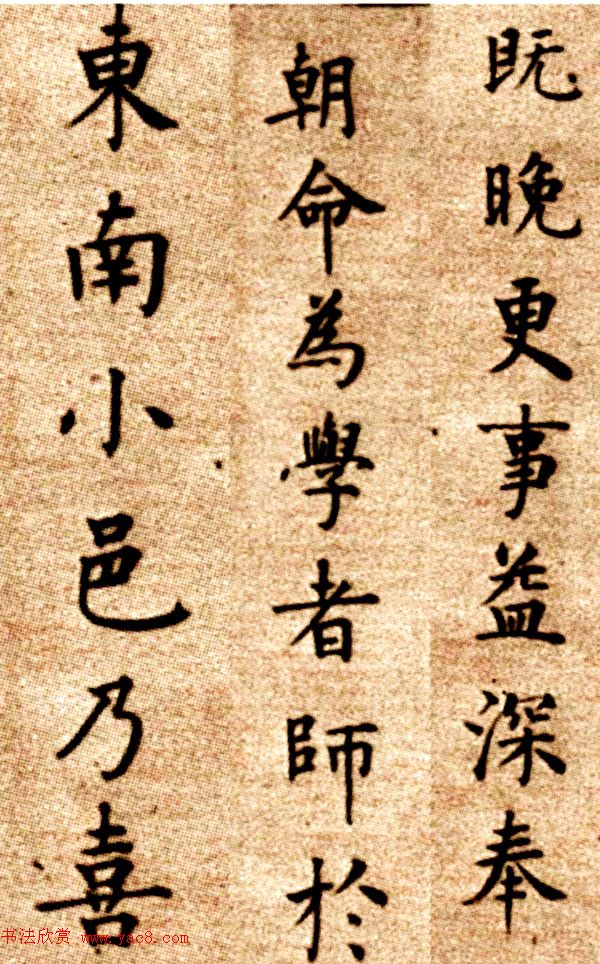 既晚更事益深奉
朝命為學者師於
東南小邑乃喜
书法欣赏 www.yac8.com